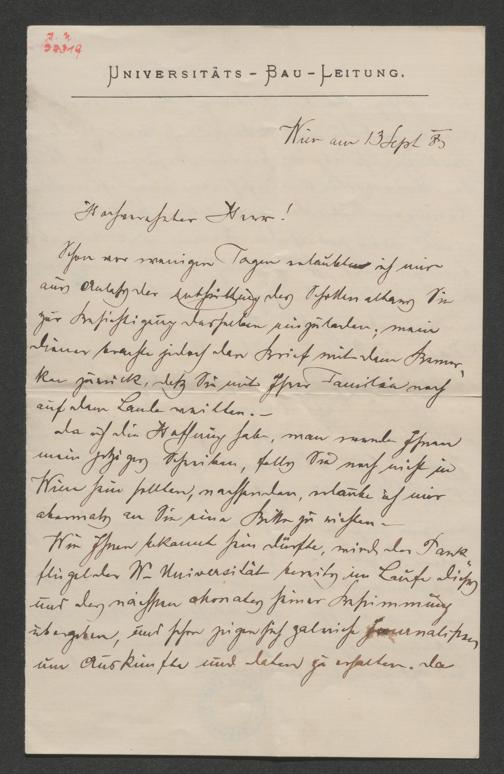 J. N.
UNIVERSITÄTS-BAU-LEITUNG.
Wien am 13 Sept 83
Hochverehrter Herr!
Schon vor wenigen Tagen erlaubte ich mir
aus Anlaß der Enthüllung des Schottenaltares Sie
zur Besichtigung desselben einzuladen; mein
Diener brachte jedoch den Brief mit dem Bemer-
ken zurück, daß Sie mit Ihrer Familie noch
auf dem Lande weilten. –
Da ich die Hoffnung habe, man werde Ihnen
mein jetziges Schreiben, falls Sie noch nicht in
Wien sein sollten, nachsenden, erlaube ich mir
abermals an Sie eine Bitte zu richten. –
Wie Ihnen bekannt sein dürfte, wird der Park
flügel der W. Universität bereits im Laufe dieses
und des nächsten Monates seiner Bestimmung
übergeben, und schon zeigen sich zalreiche Journalisten
um Auskünfte und Daten zu erhalten. Da